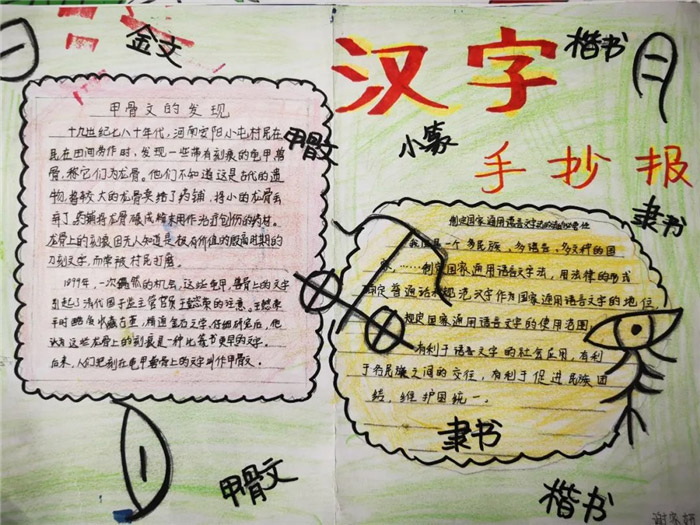 金文
汉字
楷书
甲骨文
小篆
手抄报
隶书
甲骨文的发现
十九世纪七八十年代，河南安阳小屯村民在
民在田间劳作时，发现一些带有刻痕的龟甲兽
骨，称它们为龙骨。他们不知道这是古代的遗
物，将较大的龙骨卖给了药铺，将小的龙骨丢
弃了。药铺将龙骨碾成粉末用作治疗创伤的药材。
龙骨上的刻痕因无人知道是极有价值的殷商时期的
刀刻文字，而常被村民打磨。
1899年，一次偶然的机会，这些龟甲、兽骨上的文字
引起了清代国子监主管官员王懿荣的注意。王懿荣
平时酷爱收藏古董，精通金石文字，仔细研究后，他
认为这些龙骨上的刻痕是一种比篆书更早的文字。
后来，人们把刻在龟甲兽骨上的文字叫作甲骨文。
制定国家通用语言文字法的
我国是一个多民族、多语言、多文种的国
家，……制定国家通用语言文字法，用法律的形式
确定普通话和规范汉字作为国家通用语言文字的地位
规定国家通用语言文字的使用范围
有利于语言文字的社会应用，有利
于各民族之间的交往，有利于促进民族团
结，维护国统一。
隶书
甲骨文
楷书